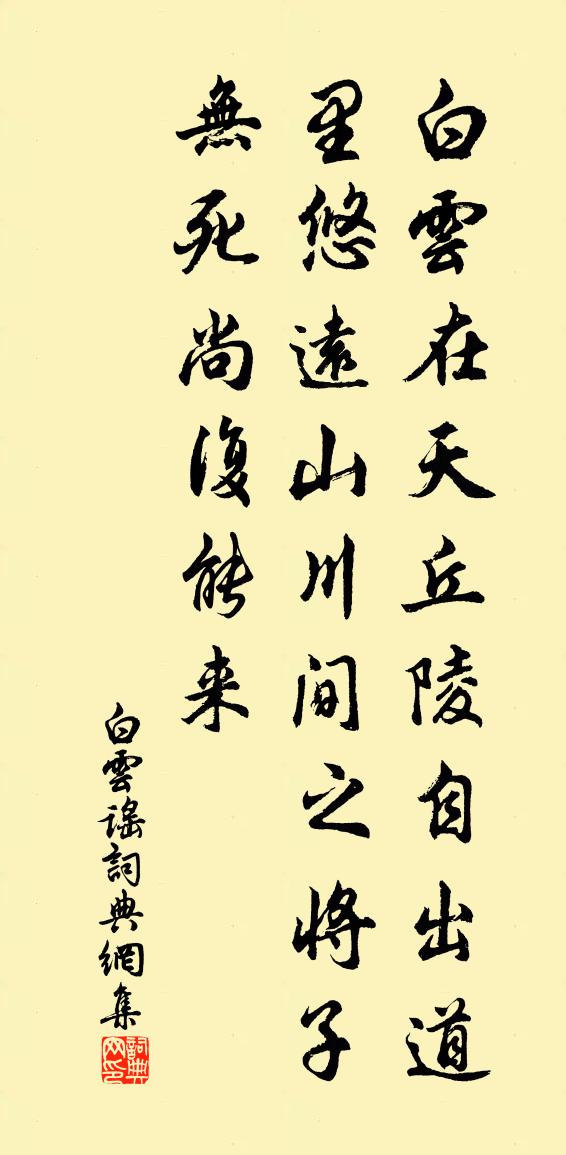 白雲在天丘陵自出道
里悠遠山川間之將子
無死尚復能来
白雲謠詞典網集
詞典网印